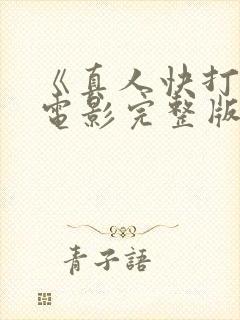 《真人快打
电影完整版
青子語